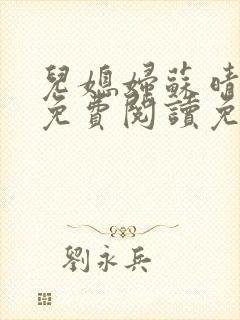 兒媳婦蘇晴
免費閱讀免
劉永兵